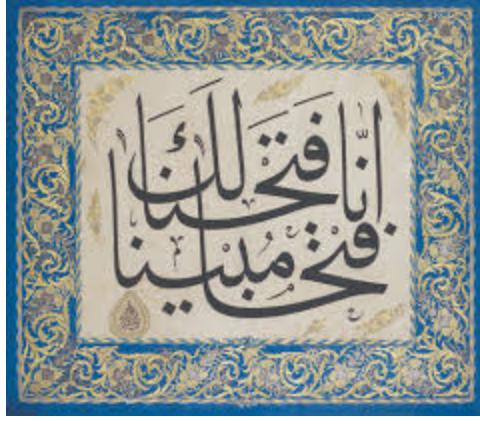 إنّا فتحنا لك
فتحا مبينا